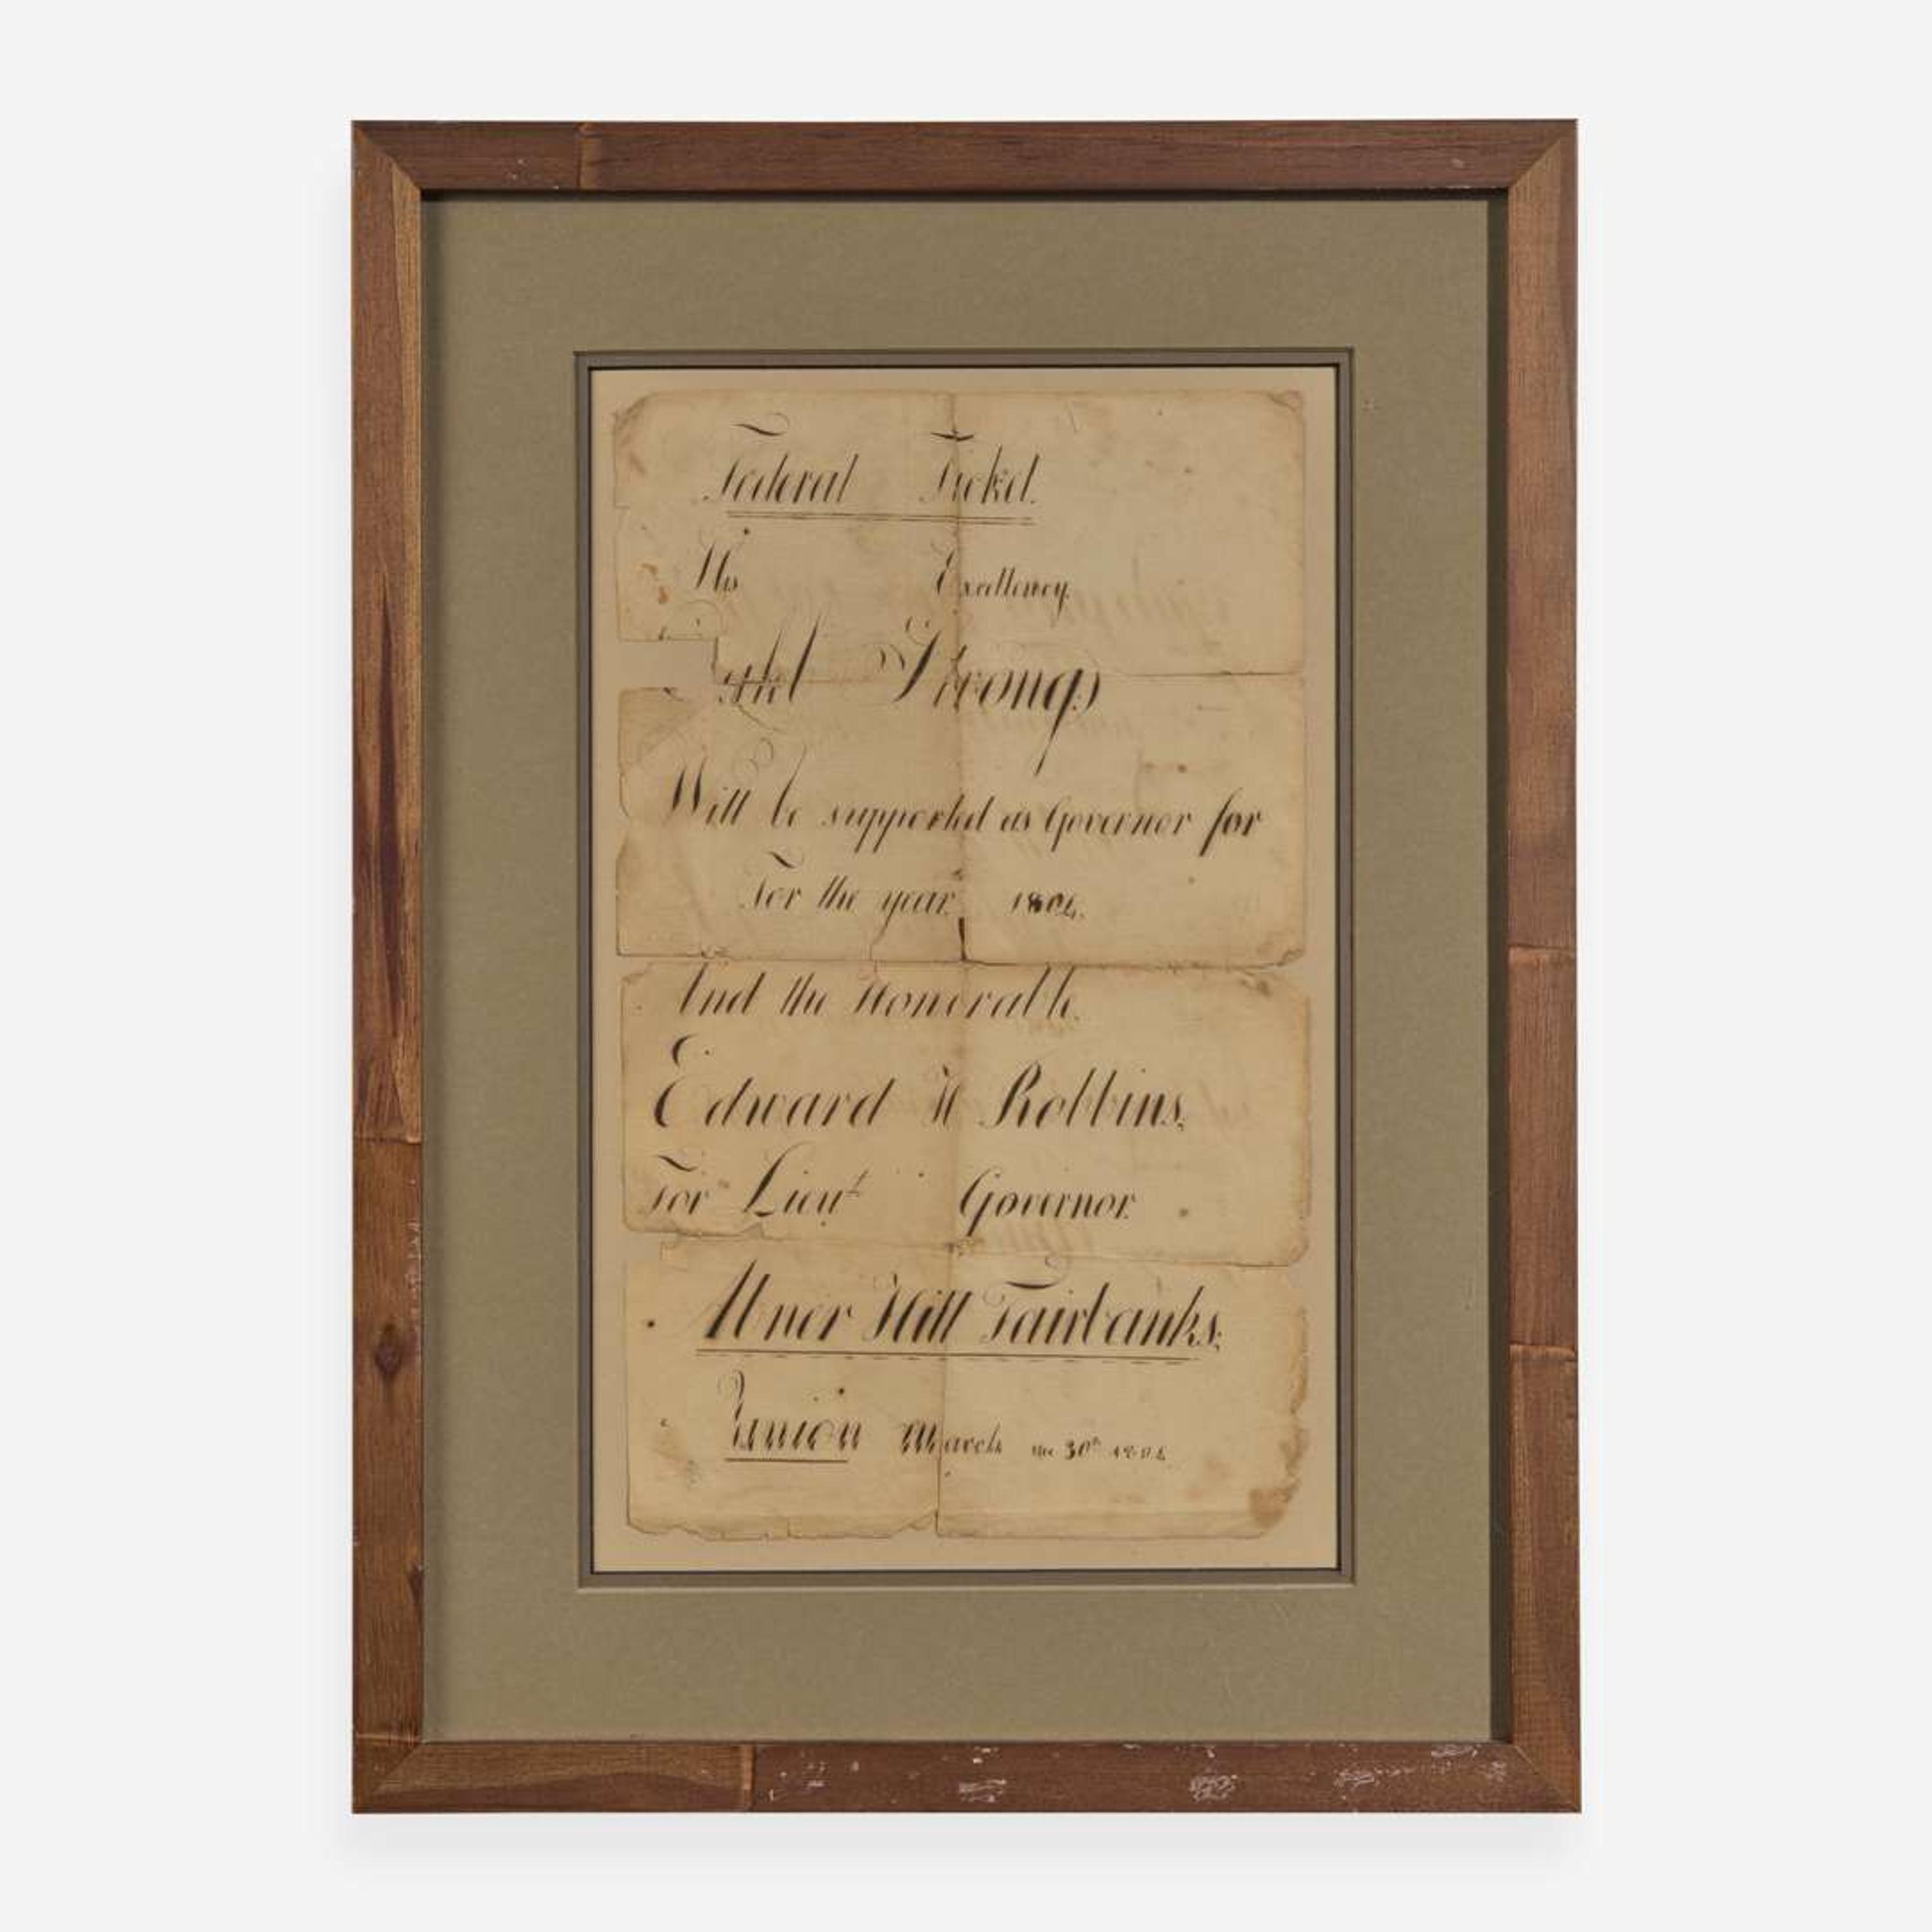 Federal Ticket.
His Excellency
Strongs
Will be supported as Governor for
For the year 1804.
And the Honorable.
Edward H Robbins,
For Lieut Governor.
Abner Hill Fairbanks;
Union March the 30th 1804